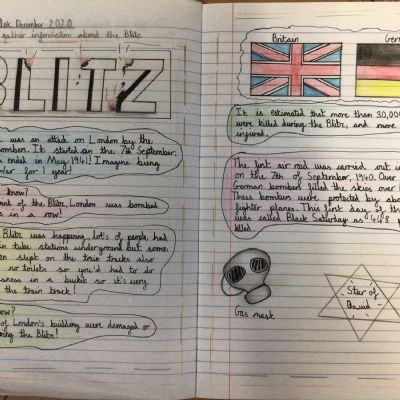 1st December 2020
gather information about the Blitz
BLITZ
was an attack on London by the
bombers. It started on the 7th September,
ended in May 1941! Imagine being
war for 1 year!
know?
of the Blitz, London was bombed
in a row!
Blitz was happening, lot's of people had
tube stations underground but some
slept on the train tracks also
no toilets so you'd had to do
in a bucket so it's very
the train track!
know?
of London's building were damaged or
the Blitz!
Britain
Ger
It is estimated that more than 30,000
were killed during the Blitz, and more
injured.
The first air raid was carried out i
on the 7th of September, 1940. Over
German bombers filled the skies over
These bombers were protected by abo
fighter planes. This first day of th
was called Black Saturday as 448 p
killed.
Gas mask
Star of
David